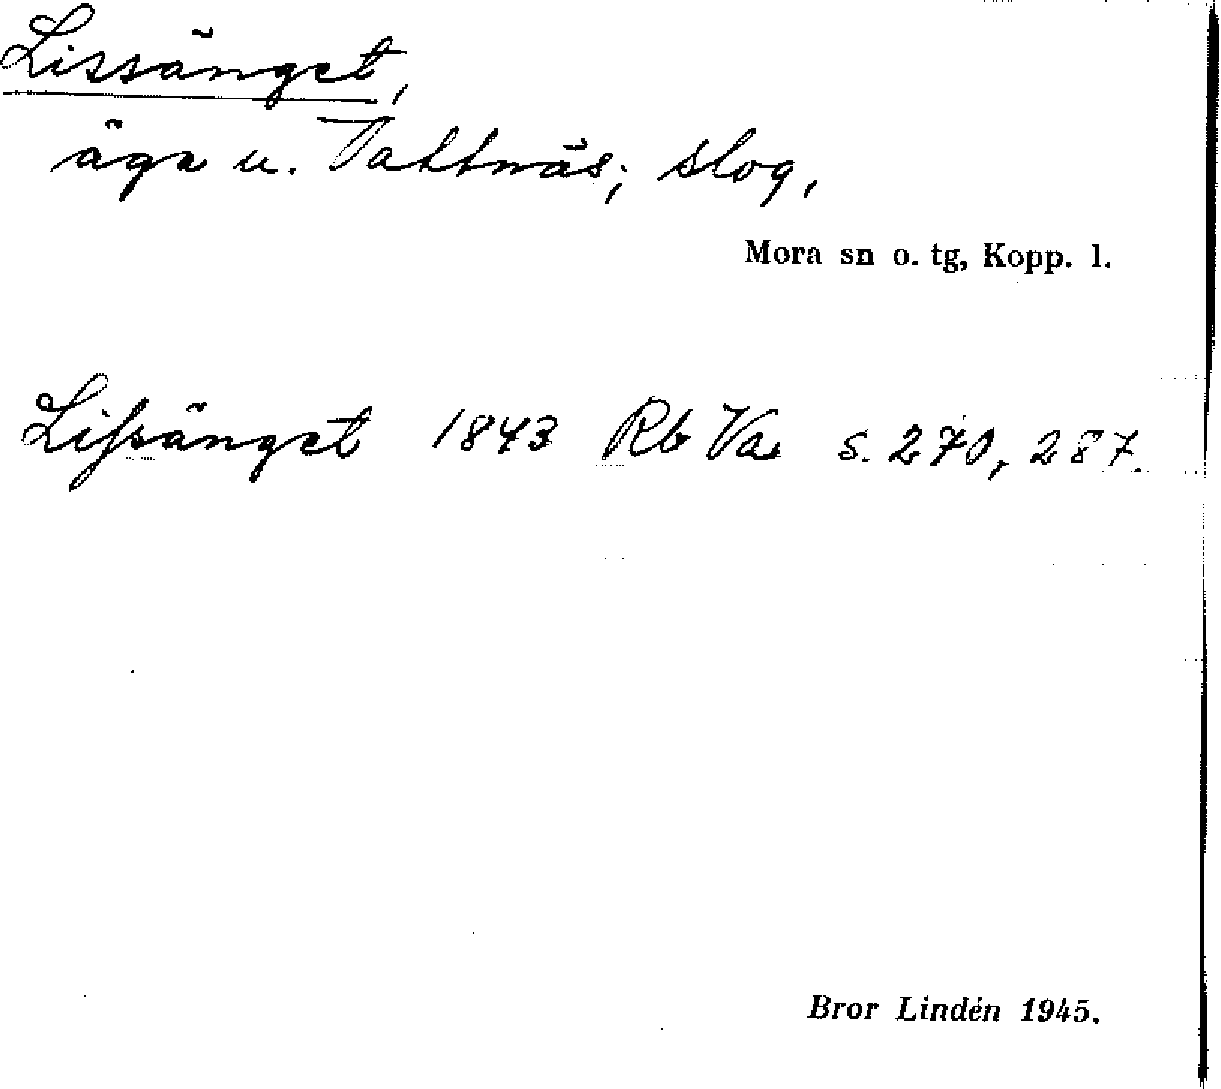 Lissänget,
äga u. Vattnäs; slog,
Mora sn o. tg, Kopp. l.
Lifsänget 1843 Rb Va s. 270, 287.
Bror Lindén 1945.